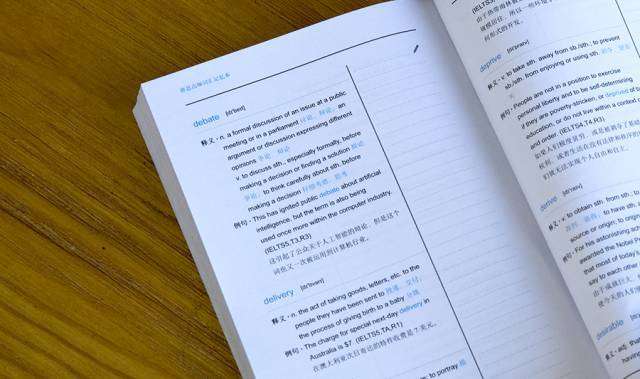 debate [dɪ'beɪt]
释义 · n. a formal discussion of an issue at a public
meeting or in a parliament 讨论，辩论; an
argument or discussion expressing different
opinions 争论，辩论
v. to discuss sth., especially formally, before
making a decision or finding a solution 辩论,
争论; to think carefully about sth. before
making a decision 仔细考虑，思考
例句 · This has ignited public debate about artificial
intelligence, but the term is also being
used once more within the computer industry.
(IELTS5,T3,R3)
这引起了公众关于人工智能的辩论，但是这个
词也又一次被运用到计算机行业。
delivery [dɪ'lɪvərɪ]
释义 · n. the act of taking goods, letters, etc. to the
people they have been sent to 投递，交付;
the process of giving birth to a baby 分娩
例句 · The charge for special next-day delivery in
Australia is $7. (IELTS5,TA,R1)
在澳大利亚次日寄达的特样收费是 7 美元。
to portray
何形式的开发。
deprive [dɪ'praɪv]
释义 · v. to take sth. away from sb./sth.; to prevent
sb./sth. from enjoying or using sth.
例句 · People are not in a position to exercise
personal liberty and to be self-determining
if they are poverty-stricken, or deprived of
education, or do not live within a context
and order. (IELTS4,T4,R3)
derive [dɪ'raɪv]
释义 · v. to obtain sth. from sth.
to have sth. a
source or origin; to orig
例句 · For his astonishing ach
awarded the Nobel
that most of today's
say to each other
desirable
释义 · adj. tha